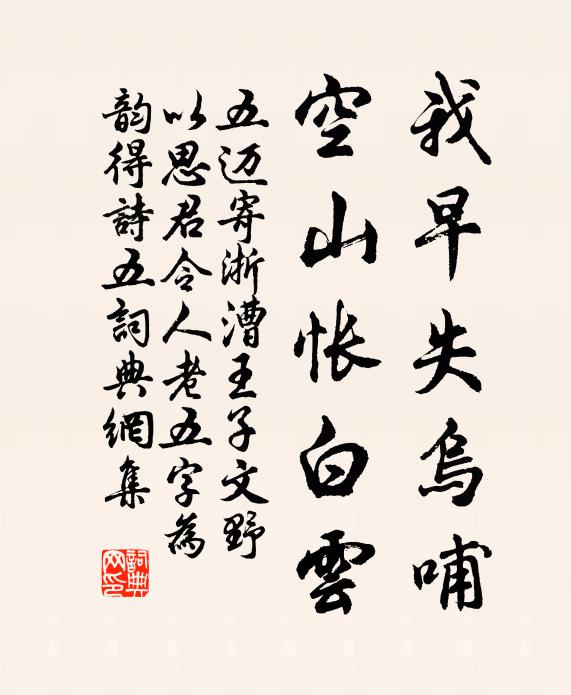 我早失烏哺
空山悵白雲
五迈寄浙漕王子文野
以思君令人老五字為
韵得詩五詞典網集
詞典
网印